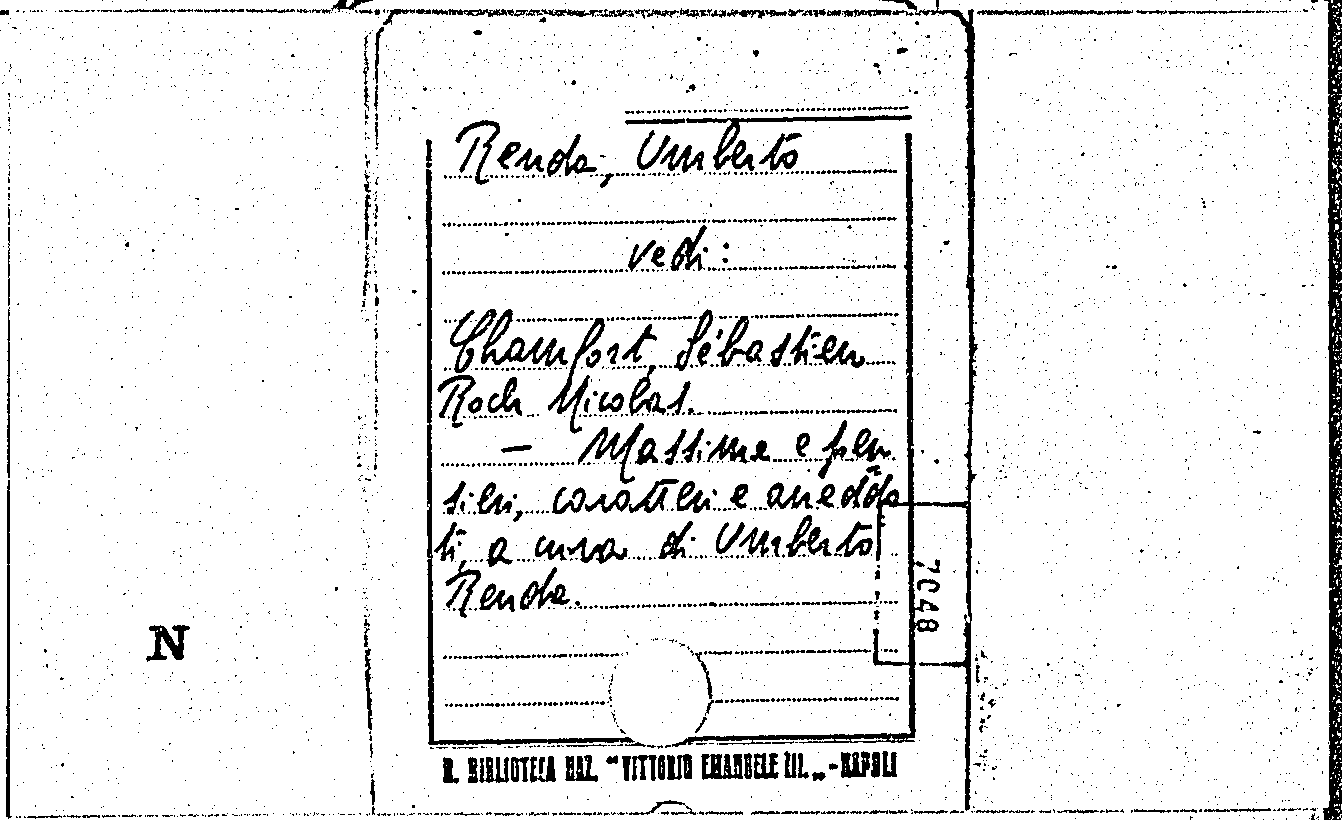 Renda, Umberto
vedi:
Chamfort, Sébastien
Roch Nicolas.
— Massime e pen
sieri, caratteri e aneddo
ti, a cura di Umberto
Renda.
7048
N
R. BIBLIOTECA NAZ. "VITTORIO EMANUELE III.„ - NAPOLI